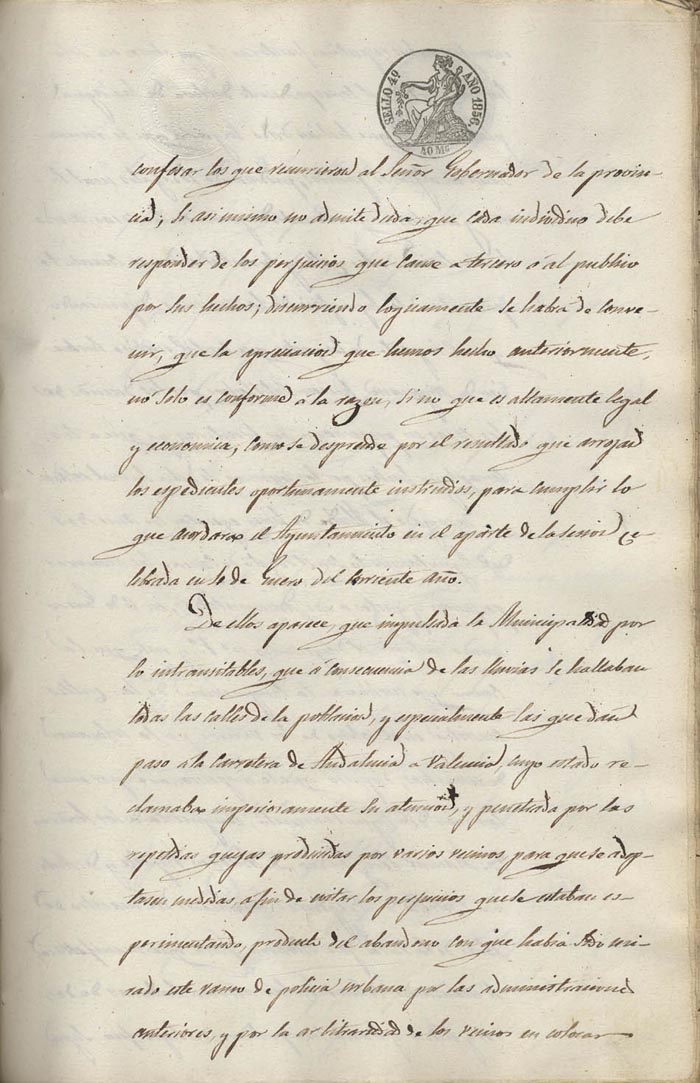 SELLO 4º AÑO 1856.
40 Mˢ
confesar los que recurrieron al Señor Gobernador de la provin-
cia; si asi mismo no admite duda, que cada individuo debe
responder de los perjuicios que cause a tercero ó al publico
por sus hechos; discurriendo logicamente se habrá de conve-
nir, que la apreciacion que hemos hecho anteriormente,
no solo es conforme á la razon, sino que es altamente legal
y economica, como se desprende por el resultado que arrojan
los espedientes oportunamente instruidos, para cumplir lo
que acordara el Ayuntamiento en el aparte de la sesion ce-
lebrada en 10 de Enero del corriente año.
De ellos aparece, que impulsada la Municipalidad por
lo intransitables, que á consecuencia de las lluvias se hallaban
todas las calles de la poblacion, y especialmente las que dan
paso á la Carretera de Andalucia a Valencia, cuyo estado re-
clamaba imperiosamente su atencion, y penetrada por las
repetidas quejas producidas por varios vecinos, para que se adop-
tasen medidas a fin de evitar los perjuicios que se estaban es-
perimentando, producto del abandono con que habia sido mi-
rado este ramo de policia urbana por las administraciones
anteriores, y por la arbitrariedad de los vecinos en colocar